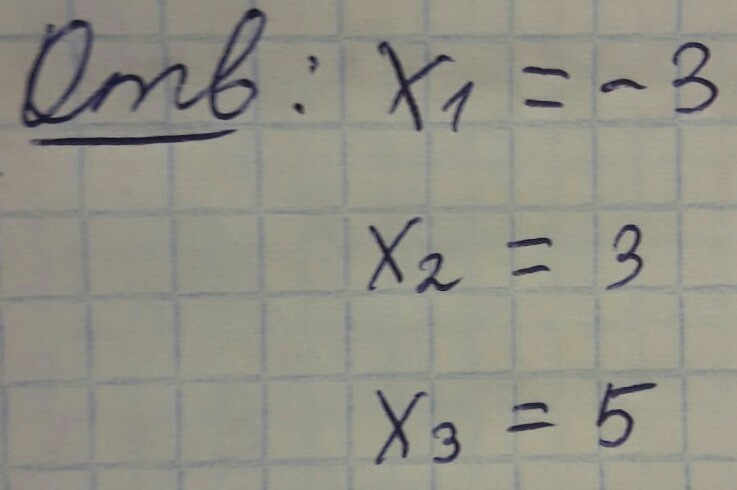 Отв: x₁ = -3
x₂ = 3
x₃ = 5